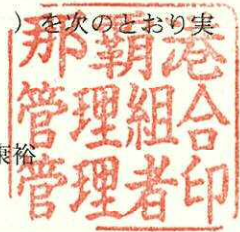 ）を次のとおり実
那覇港
管理組合
管理者印
康裕